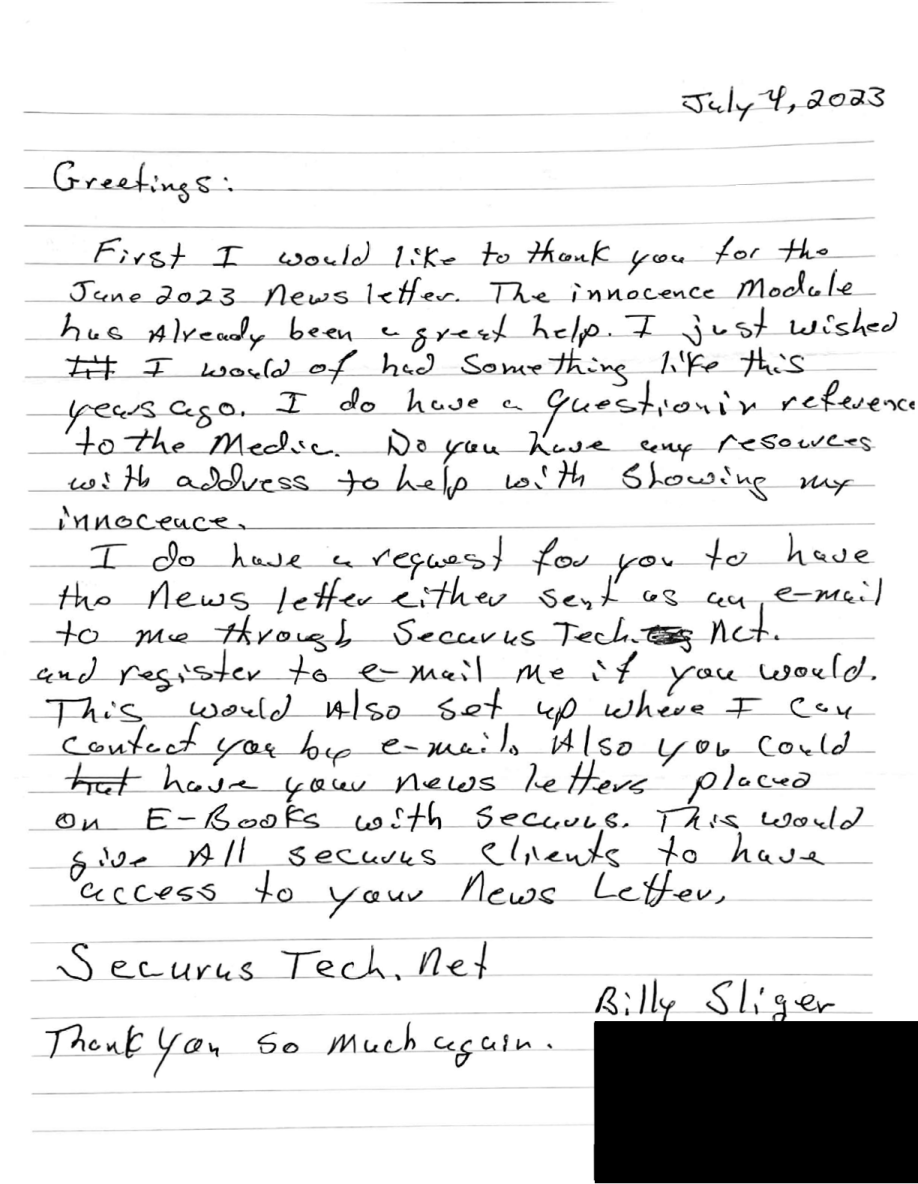 July 4, 2023
Greetings:
First I would like to thank you for the
June 2023 News letter. The innocence Module
has Already been a great help. I just wished
I would of had Something like this
years ago. I do have a question in reference
to the Media. Do you have any resources
with address to help with Showing my
innocence.
I do have a request for you to have
the News letter either sent as an e-mail
to me through Securus Tech. Net.
and register to e-mail me if you would.
This would Also set up where I can
Contact you by e-mail. Also you could
have your news letters placed
on E-Books with Securus. This would
give All securus Clients to have
access to your News Letter,
Securus Tech. Net
Billy Sliger
Thank you so much again.